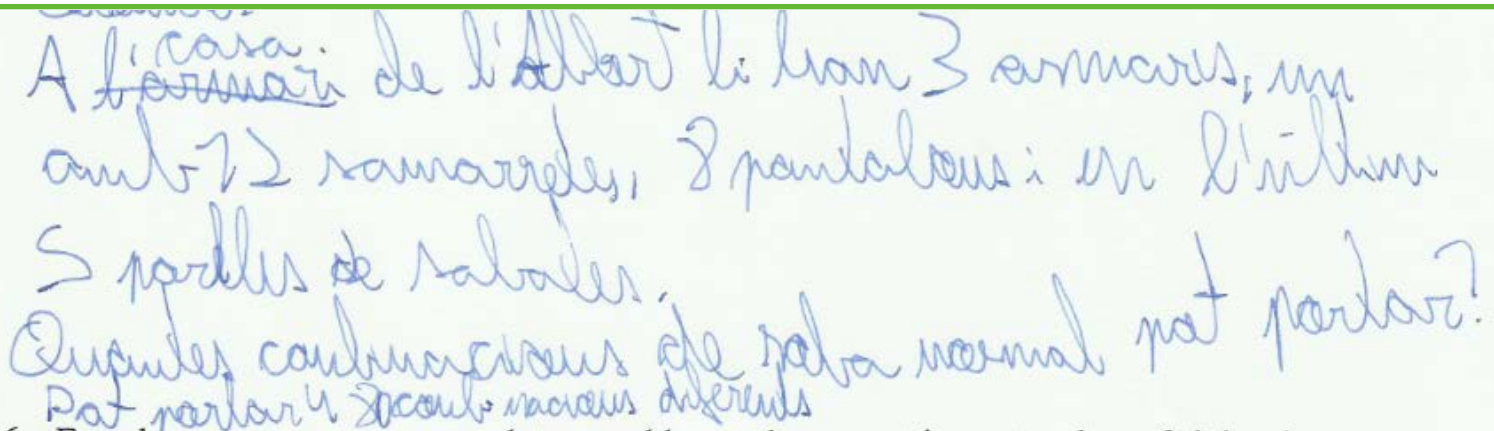 A l'armari casa de l'Albert li han 3 armaris, un
amb 12 samarretes, 8 pantalons i en l'últim
5 parells de sabates.
Quantes combinacions de roba normal pot portar?
Pot portar 480 combinacions diferents